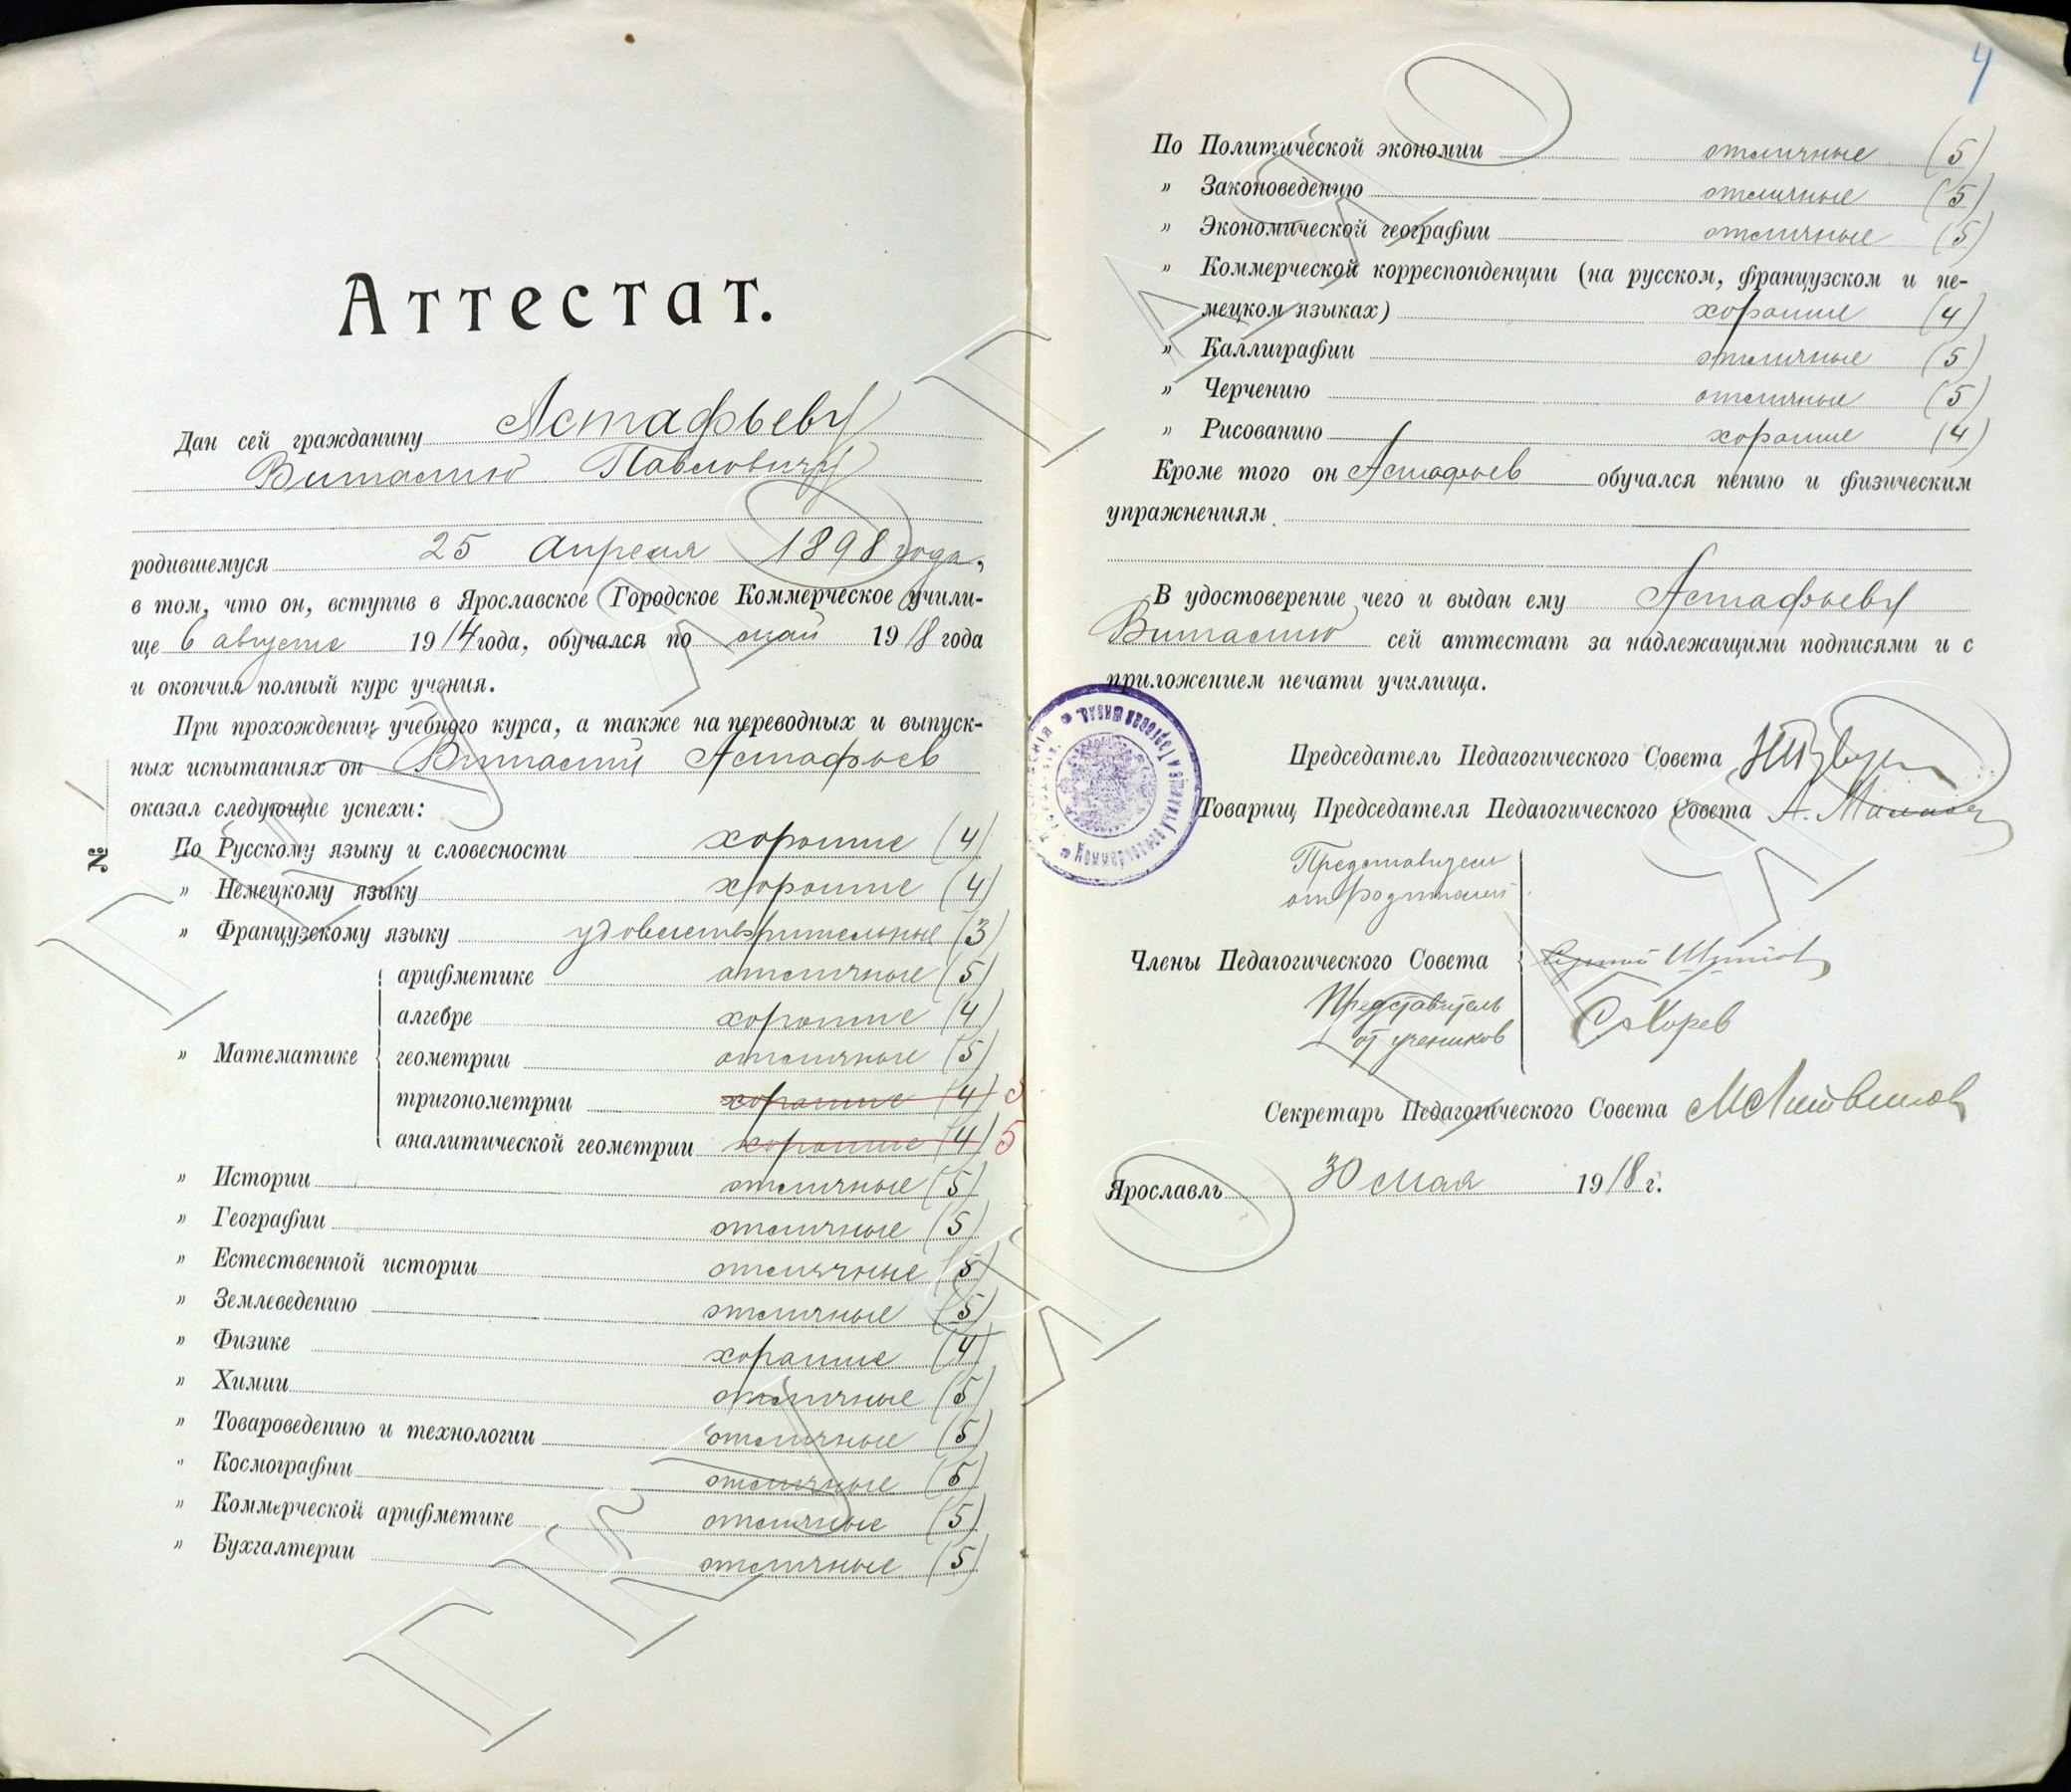 Аттестат.
Дан сей гражданину Астафьеву
Виталию Павловичу
родившемуся 25 Апреля 1898 года,
в том, что он, вступив в Ярославское Городское Коммерческое учили-
ще 6 августа 1914 года, обучался по май 1918 года
и окончил полный курс учения.
При прохождении учебного курса, а также на переводных и выпуск-
ных испытаниях он Виталий Астафьев
оказал следующие успехи:
№
По Русскому языку и словесности хорошие (4)
» Немецкому языку хорошие (4)
» Французскому языку удовлетворительные (3)
» Математике
арифметике отличные (5)
алгебре хорошие (4)
геометрии отличные (5)
тригонометрии хорошие (4) 5
аналитической геометрии хорошие (4) 5
» Истории отличные (5)
» Географии отличные (5)
» Естественной истории отличные (5)
» Землеведению отличные (5)
» Физике хорошие (4)
» Химии отличные (5)
» Товароведению и технологии отличные (5)
» Космографии отличные (5)
» Коммерческой арифметике отличные (5)
» Бухгалтерии отличные (5)
4
По Политической экономии отличные (5)
» Законоведению отличные (5)
» Экономической географии отличные (5)
» Коммерческой корреспонденции (на русском, французском и не-
мецком языках) хорошие (4)
» Каллиграфии отличные (5)
» Черчению отличные (5)
» Рисованию хорошие (4)
Кроме того он Астафьев обучался пению и физическим
упражнениям
В удостоверение чего и выдан ему Астафьеву
Виталию сей аттестат за надлежащими подписями и с
приложением печати училища.
Председатель Педагогического Совета
Товарищ Председателя Педагогического Совета А.
Представители
от родителей
Члены Педагогического Совета
Представитель
от учеников С. Хорев
Секретарь Педагогического Совета М. Литвинов
Ярославль 30 мая 1918 г.